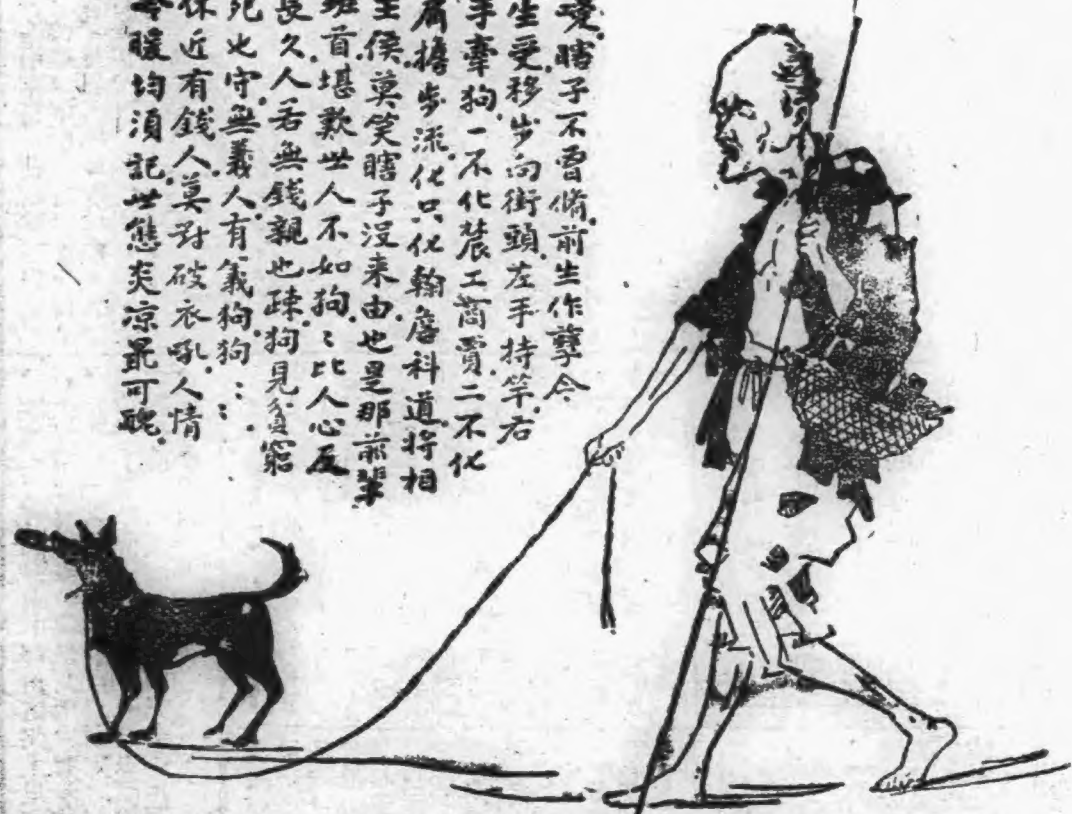 瞎子不曾脩.前生作孽今
生受.移步向街頭.左手持竿.右
手牽狗.一不化農工商賈.二不化
肩擔步流.化只化翰詹科道.將相
王侯.莫笑瞎子沒来由.也是那前輩
班首.堪歎世人不如狗.:比人心反
長久.人若無錢親也疎.狗見貧窮
死也守.無義人有義狗.狗::.
休近有錢人.莫對破衣吼.人情
冷暖均須記.世態炎凉最可醜.